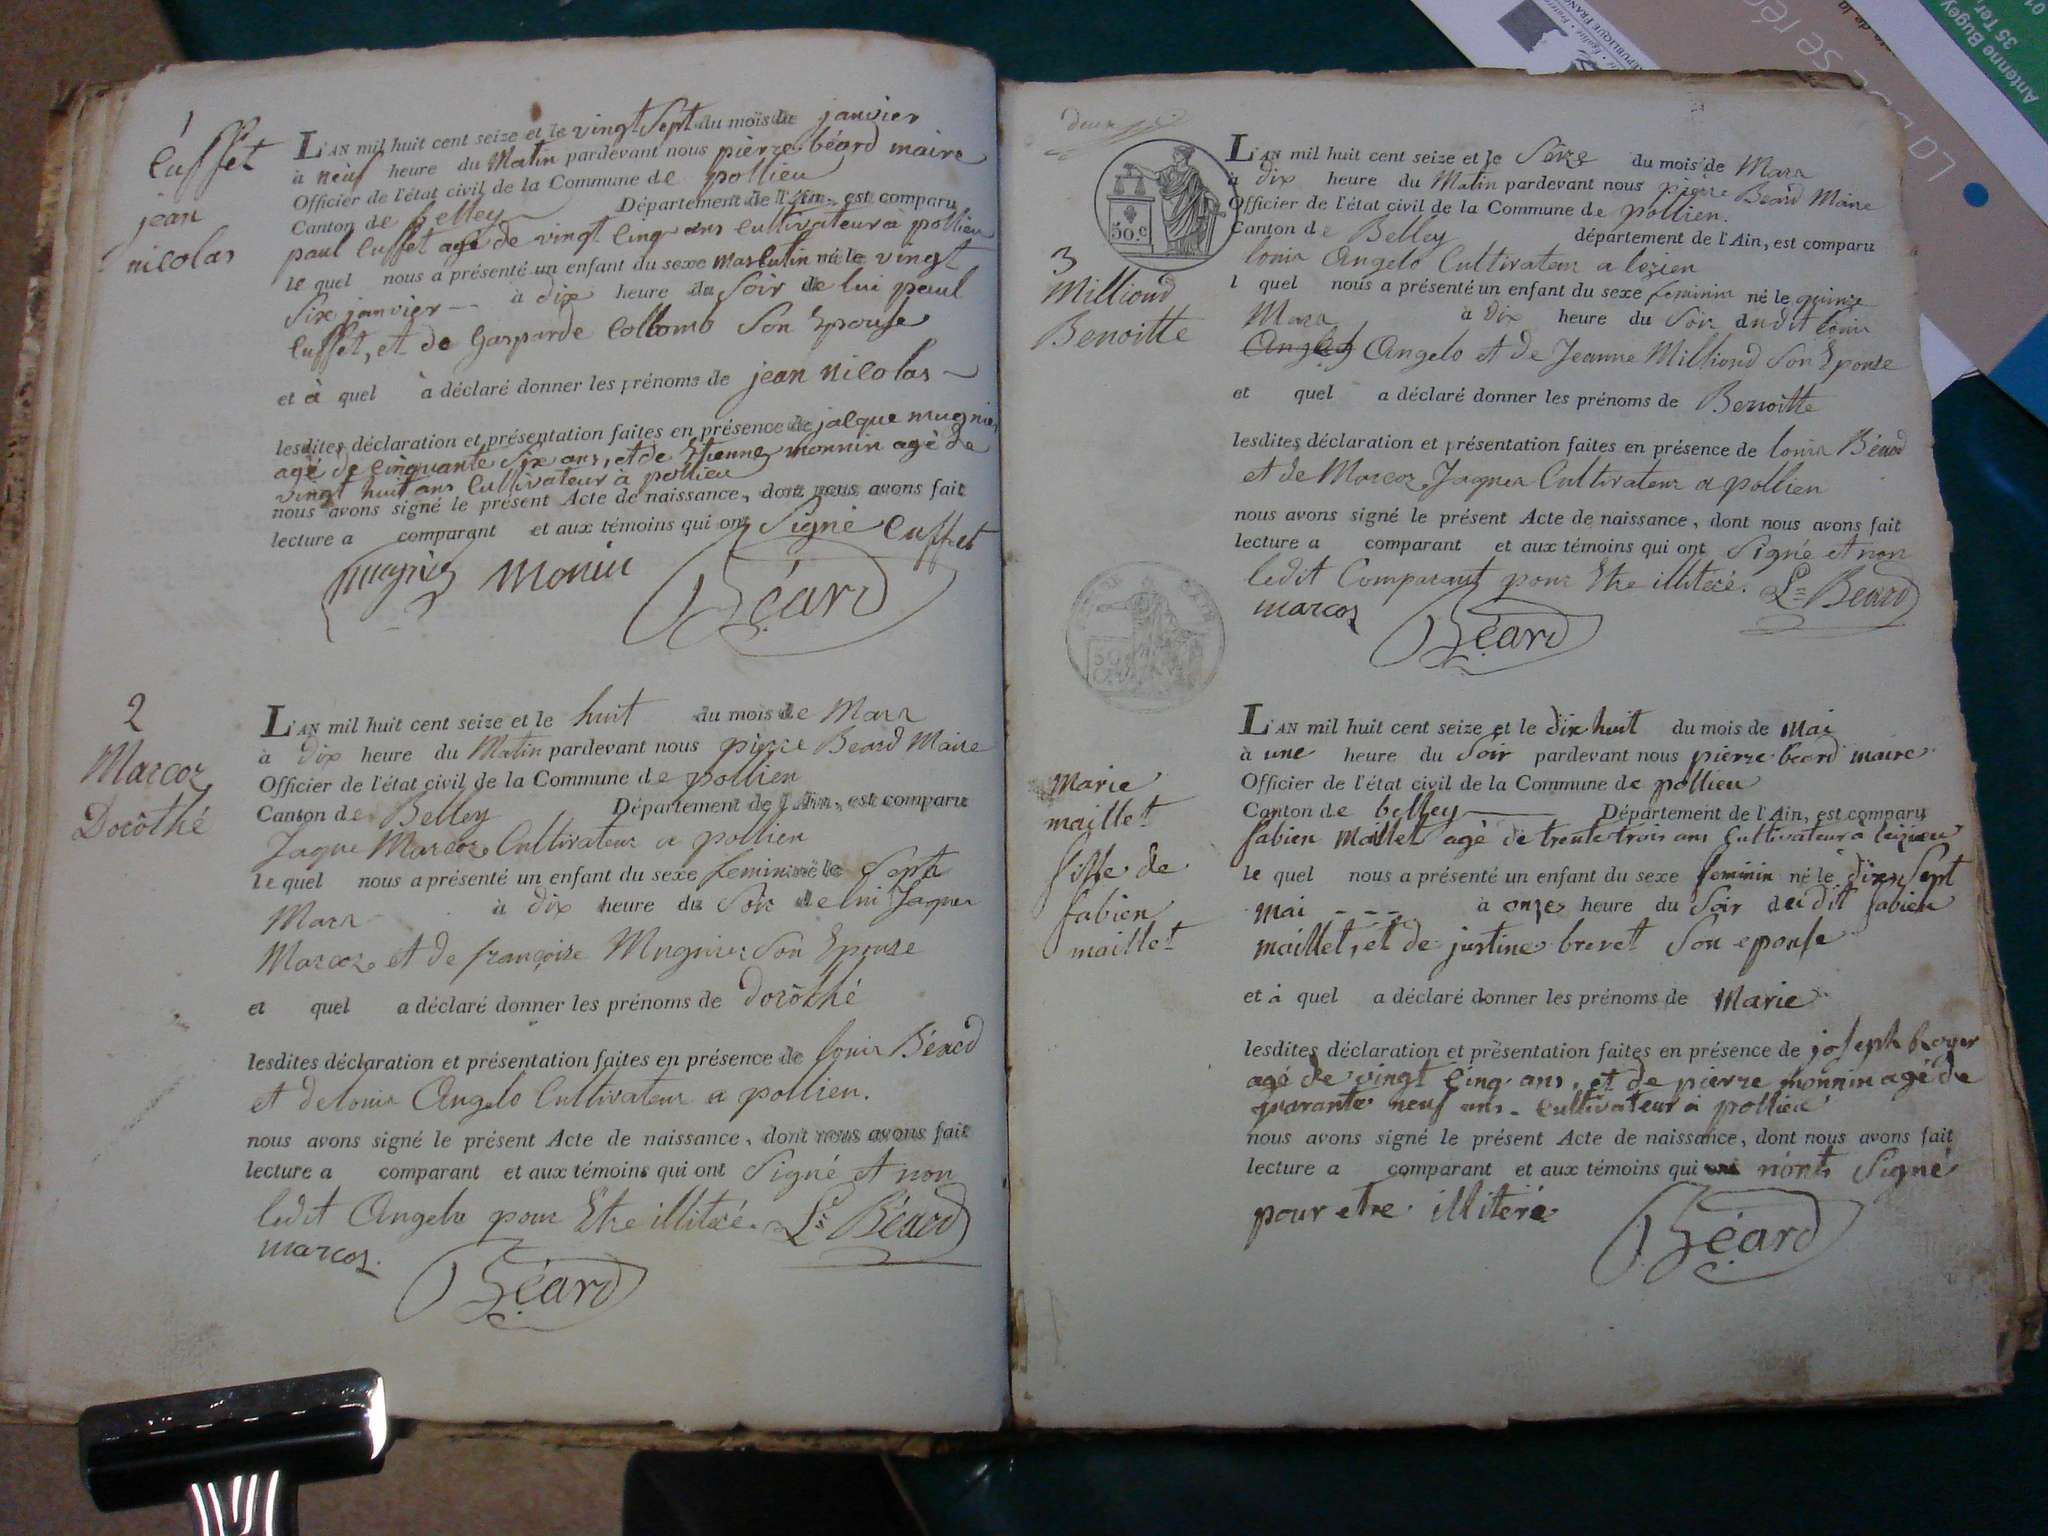 1
Cusset
jean
nicolas
L'AN mil huit cent seize et le vingt Sept du mois de janvier
à neuf heure du Matin pardevant nous pierre béard maire
Officier de l'état civil de la Commune de pollieu
Canton de belley Département de l'Ain, est comparu
paul Cusset agé de vingt Cinq ans Cultivateur à pollieu
le quel nous a présenté un enfant du sexe masculin né le vingt
Six janvier à dix heure du Soir de lui paul
Cusset, et de Gasparde Collomb Son Epouse
et à quel à déclaré donner les prénoms de jean nicolas
lesdites déclaration et présentation faites en présence de jacque mugnier
agé de Cinquante Six ans, et de Etienne monnin agé de
vingt huit ans Cultivateur à pollieu
nous avons signé le présent Acte de naissance, dont nous avons fait
lecture a comparant et aux témoins qui ont Signé Cusset
mugnier Monin Béard
2
Marcoz
Dorôthé
L'AN mil huit cent seize et le huit du mois de Mars
à dix heure du Matin pardevant nous pierre Beard Maire
Officier de l'état civil de la Commune de pollien
Canton de Belley Département de l'Ain, est comparu
Jaque Marcoz Cultivateur a pollien
le quel nous a présenté un enfant du sexe feminin né le Septe
Mars à dix heure du Soir de lui Jaques
Marcoz et de françoise Mugnier Son Epouse
et quel a déclaré donner les prénoms de Dorôthé
lesdites déclaration et présentation faites en présence de louis Béard
et de louis Angelo Cultivateur a pollien.
nous avons signé le présent Acte de naissance, dont nous avons fait
lecture a comparant et aux témoins qui ont Signé et non
ledit Angelo pour Etre illiteré. Ls Béard
marcoz Béard
deux
50.c
3
Milliond
Benoitte
L'AN mil huit cent seize et le Seize du mois de Mars
à dix heure du Matin pardevant nous pierre Beard Maire
Officier de l'état civil de la Commune de pollien.
Canton de Belley département de l'Ain, est comparu
louis Angelo Cultivateur a lezien
l quel nous a présenté un enfant du sexe feminin né le quinze
Mars à dix heure du Soir dudit louis
Angelo et de Jeanne Milliond Son Epouse
et quel a déclaré donner les prénoms de Benoitte
lesdites déclaration et présentation faites en présence de louis Béard
et de Marcoz Jaques Cultivateur a pollien
nous avons signé le présent Acte de naissance, dont nous avons fait
lecture a comparant et aux témoins qui ont Signé et non
ledit Comparant pour Etre illiteré. Ls Béard
marcoz Béard
Marie
maillet
fille de
fabien
maillet
L'AN mil huit cent seize et le dix huit du mois de Mai
à une heure du Soir pardevant nous pierre béard maire
Officier de l'état civil de la Commune de pollieu
Canton de belley Département de l'Ain, est comparu
fabien Maillet agé de trente trois ans Cultivateur à leizieu
le quel nous a présenté un enfant du sexe feminin né le dix Sept
Mai à onze heure du Soir du dit fabien
maillet, et de justine brevet Son epouse
et à quel a déclaré donner les prénoms de Marie
lesdites déclaration et présentation faites en présence de joseph
agé de vingt Cinq ans, et de pierre monnin agé de
quarante neuf ans. Cultivateur à pollieu
nous avons signé le présent Acte de naissance, dont nous avons fait
lecture a comparant et aux témoins qui n'onts Signé
pour etre illiteré Béard
RÉPUBLIQUE FRANÇ
Antenne Bugey
35 Ter
01